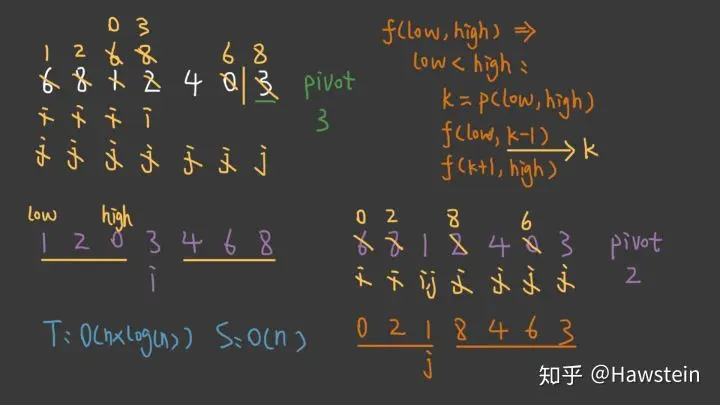 0 3
1 2 6 8 6 8
6 8 1 2 4 0 3 pivot
3
i i i i
j j j j j j j
f(low, high) ⇒
low < high :
k = p(low, high)
f(low, k-1)
→ k
f(k+1, high)
low high
1 2 0 3 4 6 8
i
T: O(n×log(n)) S: O(n)
0 2 8 6
6 8 1 2 4 0 3 pivot
2
i i i,j j j j j
0 2 1 8 4 6 3
j
知乎 @Hawstein